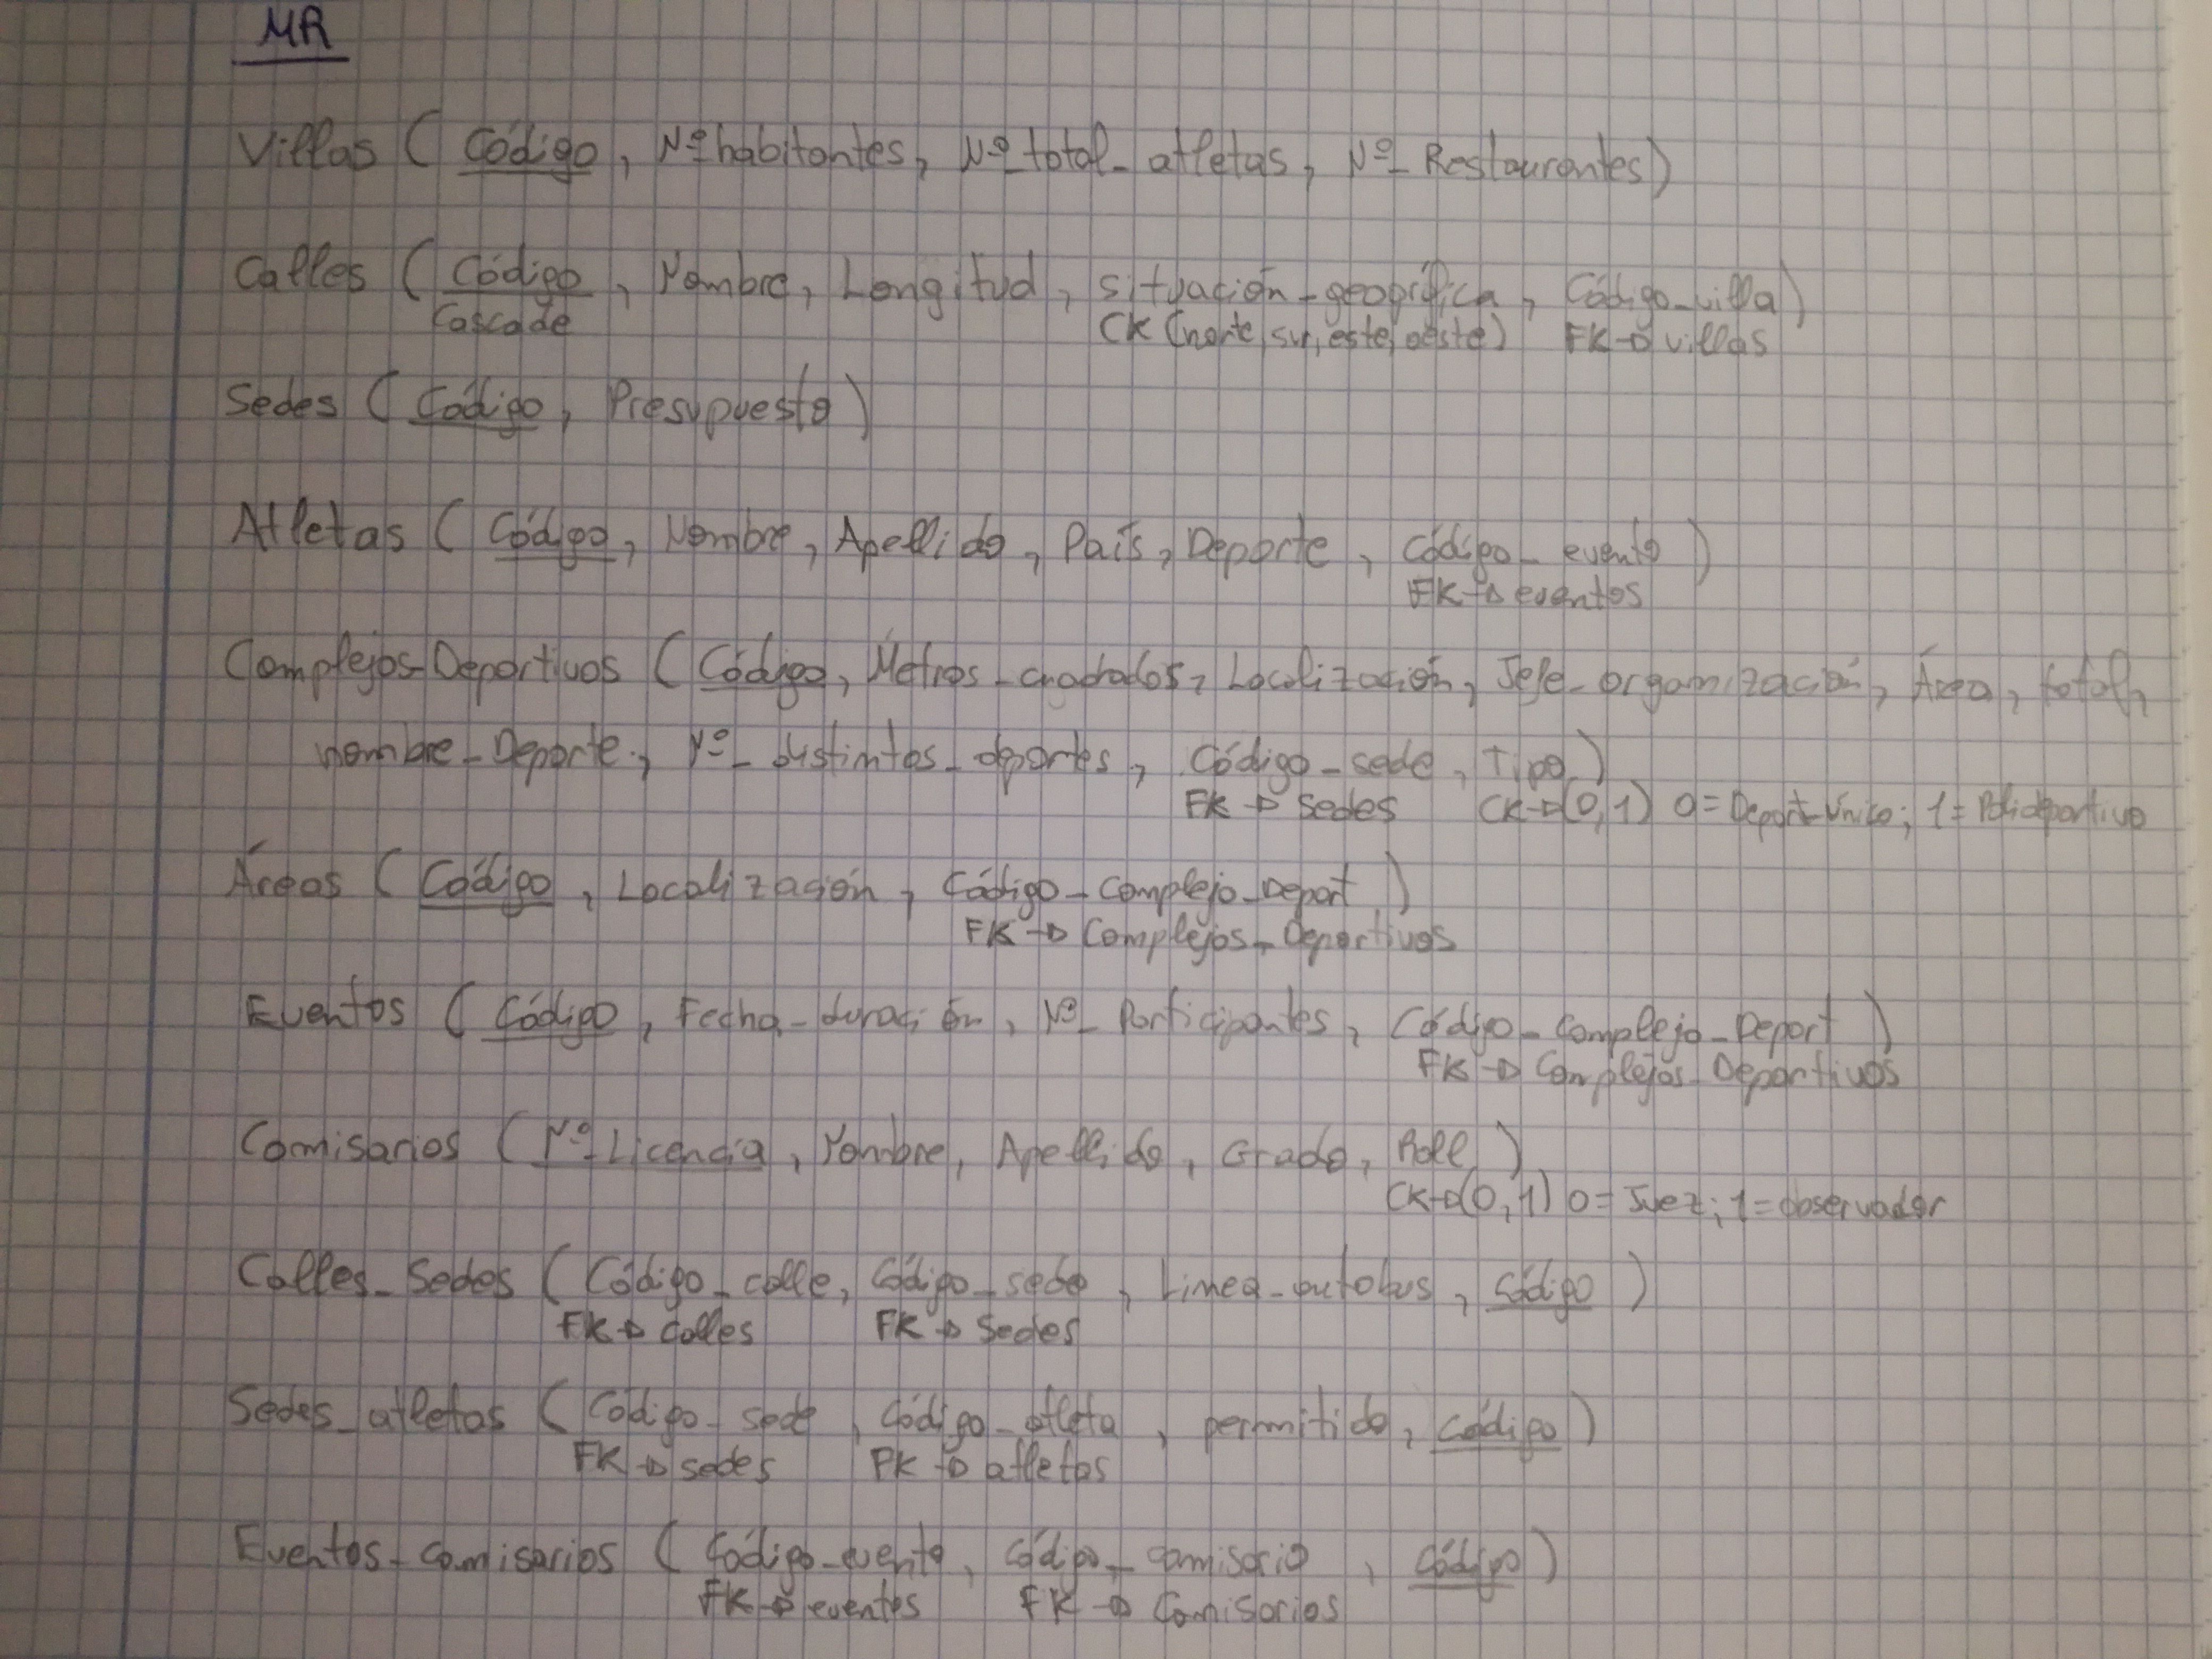 MR
Villas ( Código, Nº habitantes, Nº_total_atletas, Nº_Restaurantes)
Calles ( Código, Nombre, Longitud, situación_geográfica, Código_villa)
Cascade CK (norte, sur, este, oeste) FK→villas
Sedes ( Código, Presupuesto)
Atletas ( Código, Nombre, Apellido, País, Deporte, Código_evento )
FK→eventos
Complejos_Deportivos ( Código, Metros_cuadrados, Localización, Jefe_organización, Área, total,
nombre_Deporte, Nº_distintos_deportes, Código_sede, Tipo )
FK→Sedes CK→(0,1) 0=Deport_Único; 1=Polideportivo
Áreas ( Código, Localización, Código_Complejo_Deport )
FK→Complejos_Deportivos
Eventos ( Código, Fecha_duración, Nº_Participantes, Código_Complejo_Deport )
FK→Complejos_Deportivos
Comisarios ( Nº_Licencia, Nombre, Apellido, Grado, Roll )
CK→(0,1) 0=Juez; 1=observador
Calles_Sedes ( Código_calle, Código_sede, Linea_autobus, Código )
FK→Calles FK→Sedes
Sedes_atletas ( Código_sede, Código_atleta, permitido, Código )
FK→sedes FK→atletas
Eventos_comisarios ( Código_evento, código_comisario, Código )
FK→eventos FK→Comisarios